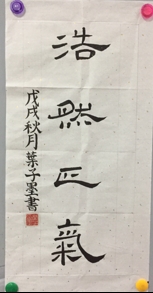 浩然正氣
戊戌秋月葉子墨書